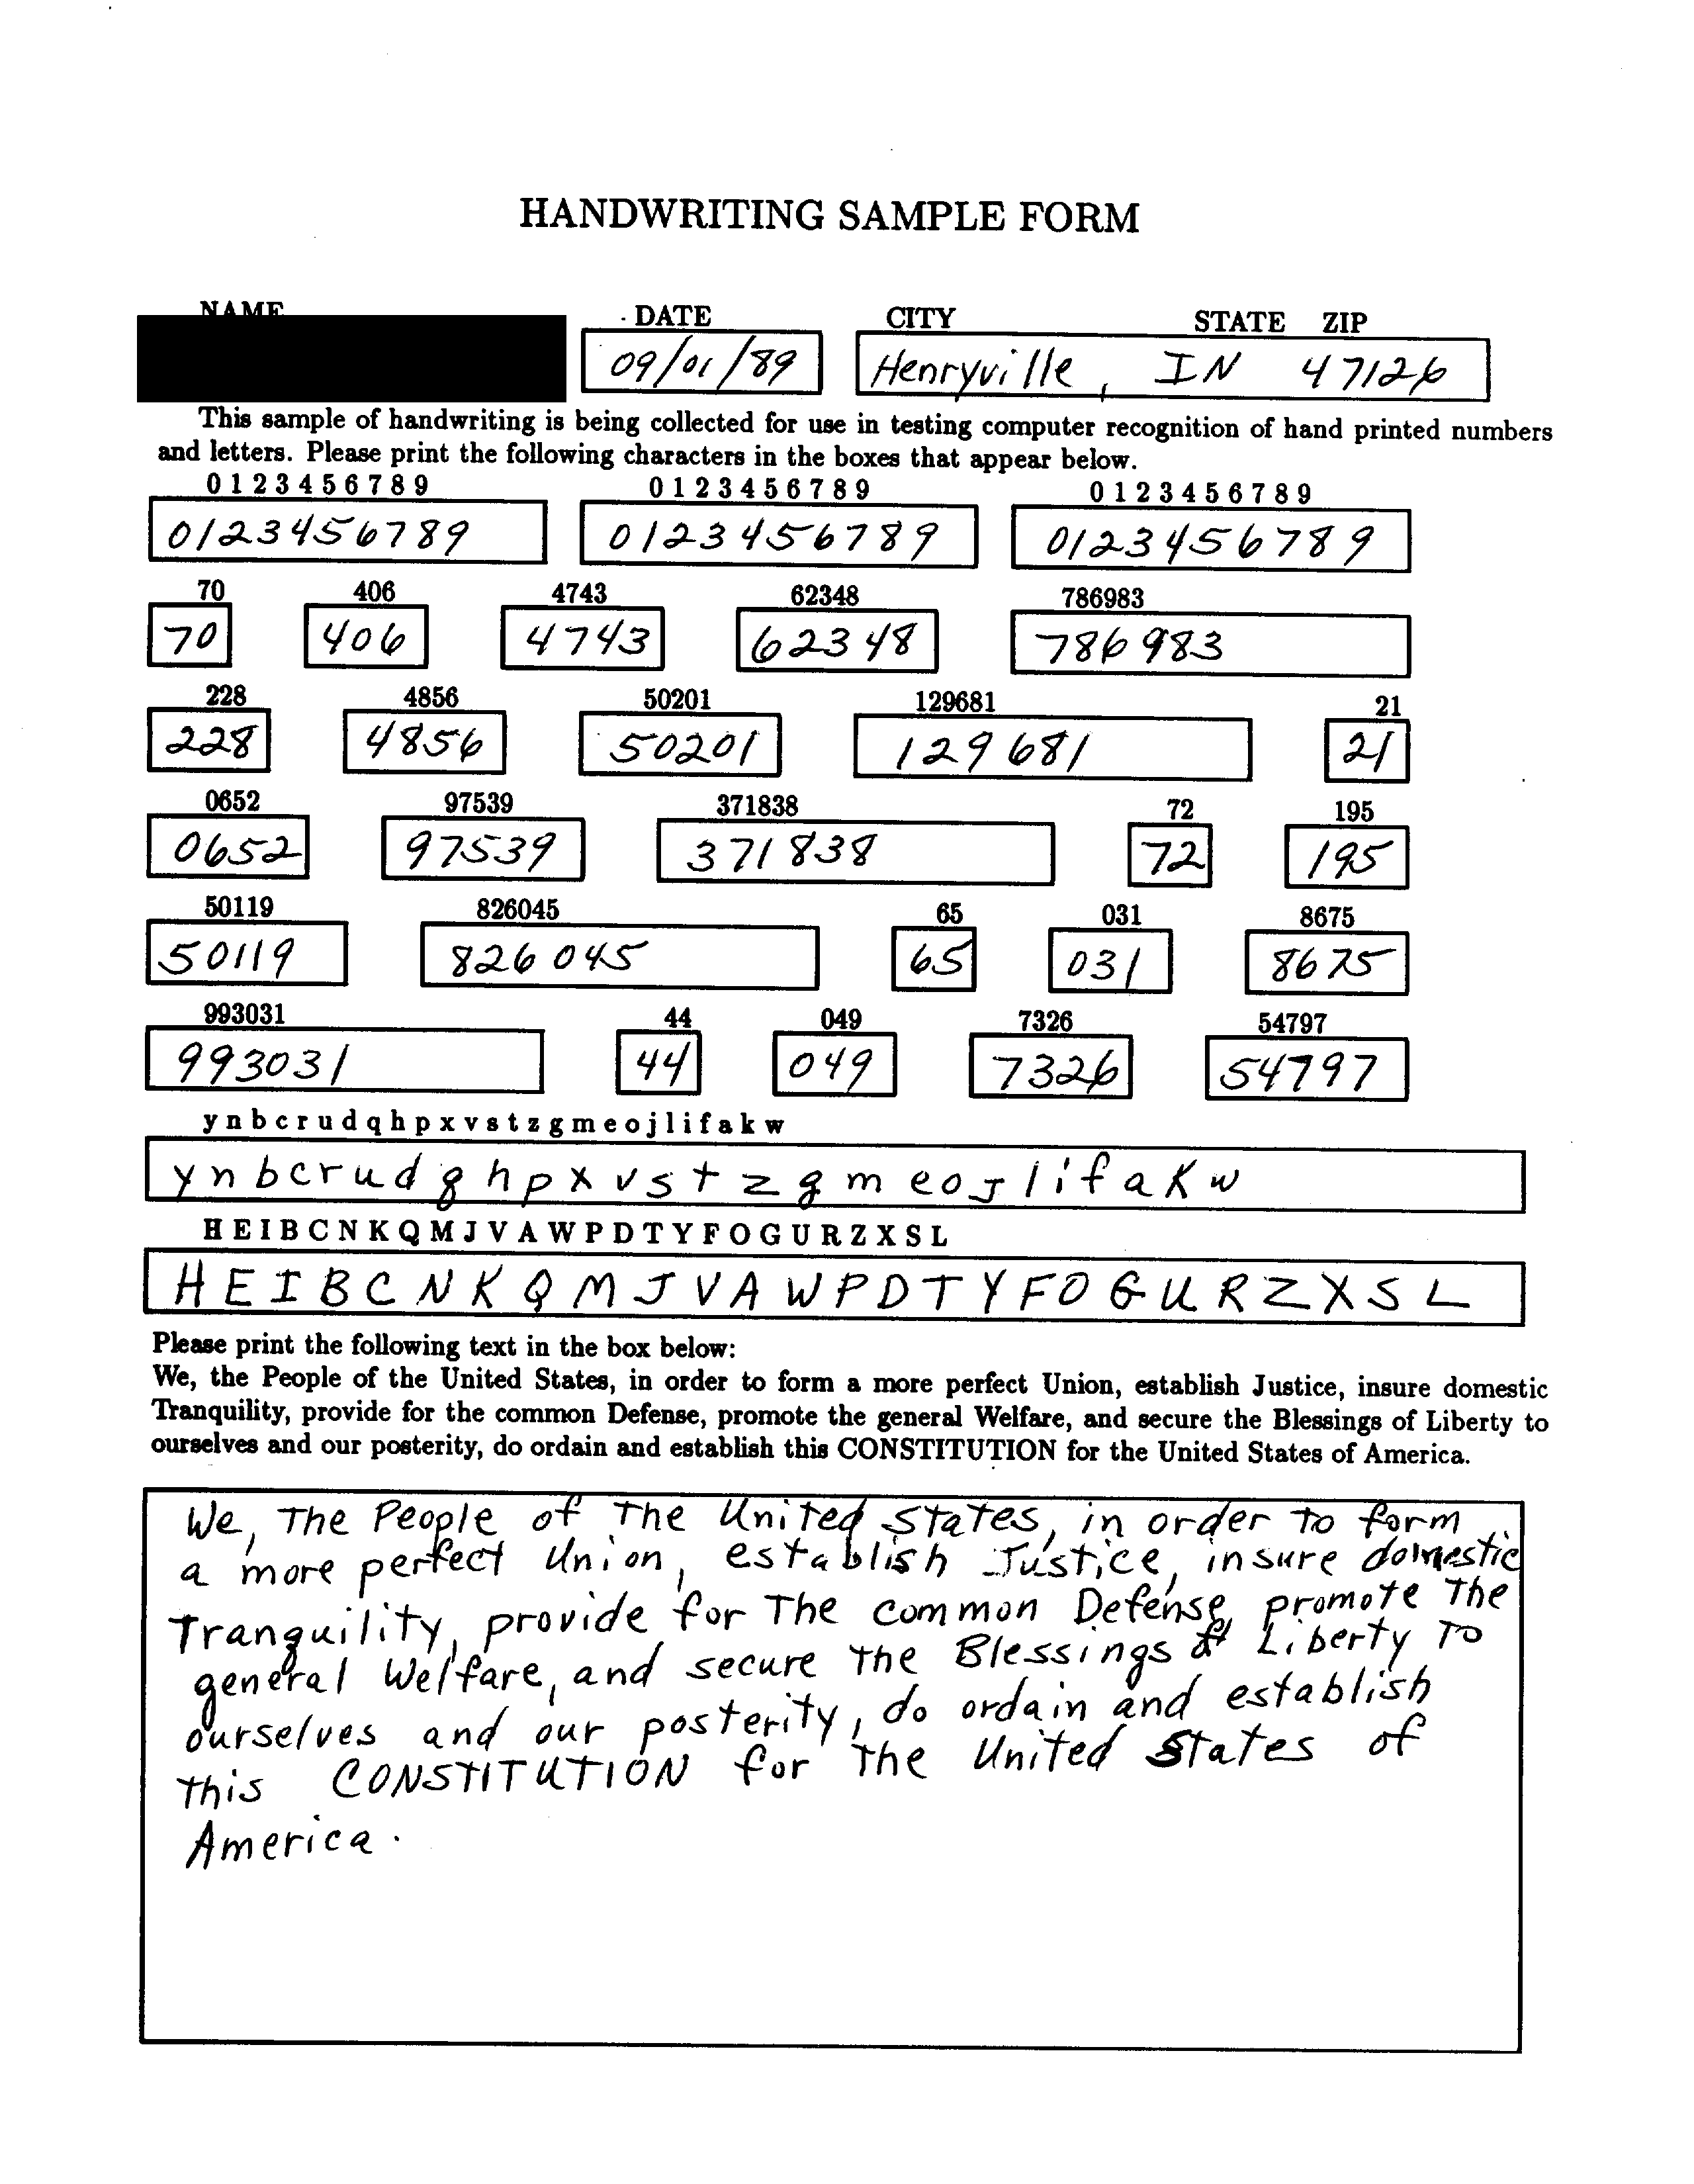 HANDWRITING SAMPLE FORM
NAME DATE CITY STATE ZIP
09/01/89 Henryville, IN 47126
This sample of handwriting is being collected for use in testing computer recognition of hand printed numbers
and letters. Please print the following characters in the boxes that appear below.
0 1 2 3 4 5 6 7 8 9 0 1 2 3 4 5 6 7 8 9 0 1 2 3 4 5 6 7 8 9
0123456789 0123456789 0123456789
70 406 4743 62348 786983
70 406 4743 62348 786983
228 4856 50201 129681 21
228 4856 50201 129681 21
0652 97539 371838 72 195
0652 97539 371838 72 195
50119 826045 65 031 8675
50119 826045 65 031 8675
993031 44 049 7326 54797
993031 44 049 7326 54797
y n b c r u d q h p x v s t z g m e o j l i f a k w
y n b c r u d q h p x v s t z g m e o J l i f a K w
H E I B C N K Q M J V A W P D T Y F O G U R Z X S L
H E I B C N K Q M J V A W P D T Y F O G U R Z X S L
Please print the following text in the box below:
We, the People of the United States, in order to form a more perfect Union, establish Justice, insure domestic
Tranquility, provide for the common Defense, promote the general Welfare, and secure the Blessings of Liberty to
ourselves and our posterity, do ordain and establish this CONSTITUTION for the United States of America.
We, The People of The United States, in order To form
a more perfect Union, establish Justice, insure domestic
Tranquility, provide for The common Defense, promote The
general Welfare, and secure The Blessings of Liberty To
ourselves and our posterity, do ordain and establish
This CONSTITUTION for The United States of
America.